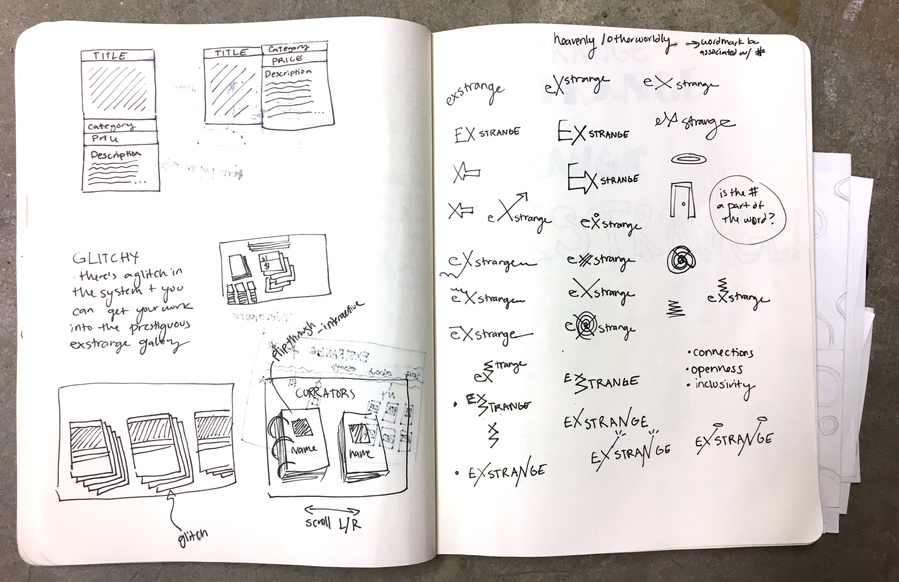 TITLE
category
PRICE
Description
TITLE
Category
PRICE
Description
GLITCHY
there's a glitch in
the system + you
can get your work
into the prestiguous
exstrange gallery
glitch
flip through - interactive
CURRATORS
Name
name
scroll L/R
heavenly / otherworldly → wordmark be
associated w/ #
exstrange
eXstrange
eXstrange
EXSTRANGE
EXSTRANGE
eXstrange
EXSTRANGE
is the #
a part of
the word?
eXstrange
eXstrange
eXstrange
exstrange
eXstrange
eXstrange
eXstrange
eXstrange
eXstrange
eXstrange
• connections
• openness
• inclusivity
EXSTRANGE
• EXSTRANGE
EXSTRANGE
EXSTRANGE
EXSTRANGE
• EXSTRANGE